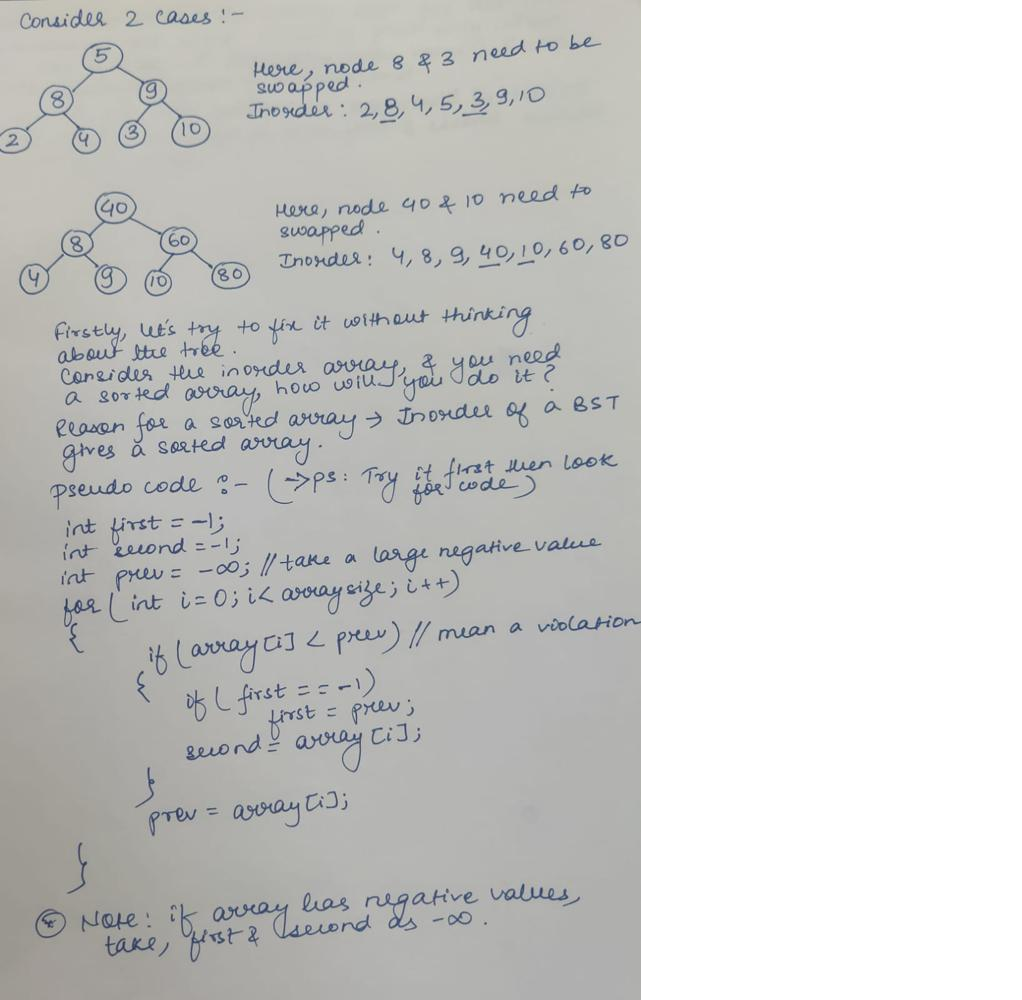 Consider 2 cases :-
5
8 9
2 4 3 10
Here, node 8 & 3 need to be
swapped.
Inorder: 2, 8, 4, 5, 3, 9, 10
40
8 60
4 9 10 80
Here, node 40 & 10 need to
swapped.
Inorder: 4, 8, 9, 40, 10, 60, 80
Firstly, let's try to fix it without thinking
about the tree.
Consider the inorder array, & you need
a sorted array, how will you do it?
Reason for a sorted array → Inorder of a BST
gives a sorted array.
Pseudo code :- (→ps: Try it first then look
for code)
int first = -1;
int second = -1;
int prev = -∞; // take a large negative value
for (int i=0; i< arraysize; i++)
{
if (array[i] < prev) // mean a violation
{
if (first == -1)
first = prev;
second = array[i];
}
prev = array[i];
}
* Note: if array has negative values,
take, first & second as -∞.